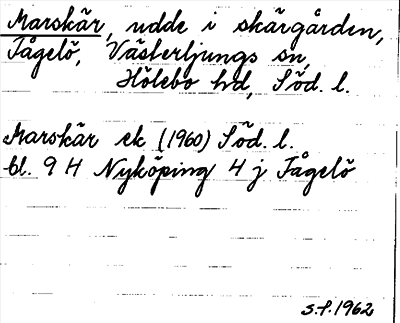 Marskär, udde i skärgården,
Fågelö, Västerljungs sn,
Hölebo hd, Söd. l.
Marskär ek (1960) Söd. l.
bl. 9 H Nyköping 4 j Fågelö
s.f. 1962